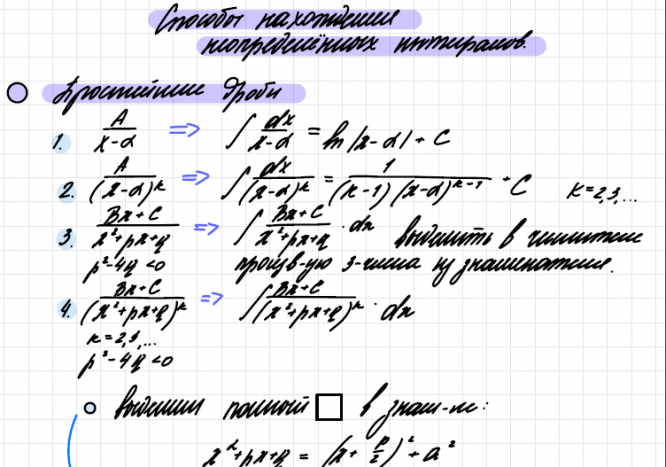 Способы нахождения
неопределённых интегралов.
Простейшие дроби
1. A/(x-α) => ∫ dx/(x-α) = ln|x-α| + C
2. A/(x-α)^k => ∫ dx/(x-α)^k = 1/((k-1)(x-α)^(k-1)) + C k=2,3,...
3. Bx+C/(x²+px+q) => ∫ Bx+C/(x²+px+q) · dx выделить в числителе
p²-4q<0 произв-ую з-числа из знаменателя.
4. Bx+C/(x²+px+q)^k => ∫ Bx+C/(x²+px+q)^k · dx
k=2,3,...
p²-4q<0
выделим полный □ в знам-ле:
x²+px+q = (x+p/2)²+a²